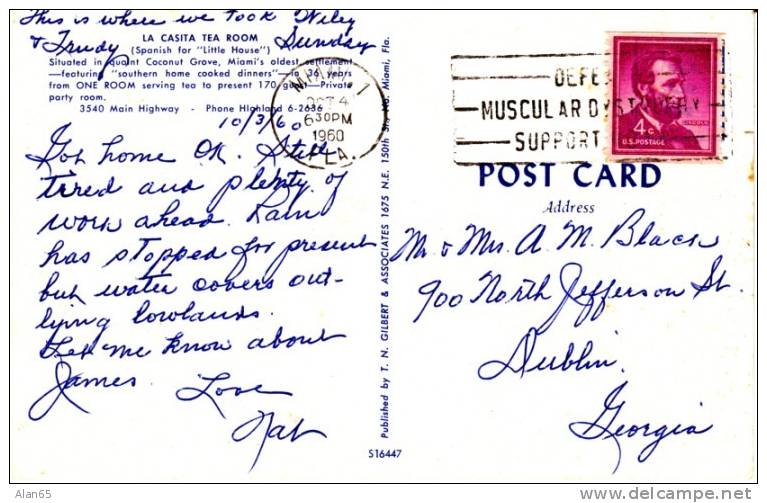 This is where we took Wiley
& Trudy Sunday
LA CASITA TEA ROOM
(Spanish for "Little House")
Situated in quaint Coconut Grove, Miami's oldest settlement
—featuring "southern home cooked dinners"—in 36 years
from ONE ROOM serving tea to present 170 guests—Private
party room.
3540 Main Highway - Phone Highland 6-2636
10/3/60
Got home OK. Still
tired and plenty of
work ahead. Rain
has stopped for present
but water covers out-
lying lowlands.
Let me know about
James. Love
Nat
MIAMI 1
OCT 4
630PM
1960
FLA.
MUSCULAR DYSTROPHY
SUPPORT
4c
LINCOLN
U.S. POSTAGE
POST CARD
Address
Mr. & Mrs. A. M. Black
900 North Jefferson St.
Dublin.
Georgia
Published by T. N. GILBERT & ASSOCIATES 1675 N.E. 150th St., No. Miami, Fla.
S16447
Alan65
http://www.delcampe.net